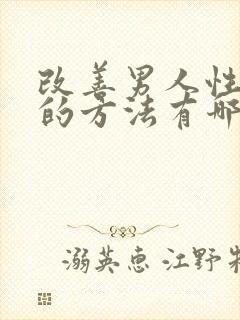 改善男人性
的方法有哪
溺英惠 江野牧